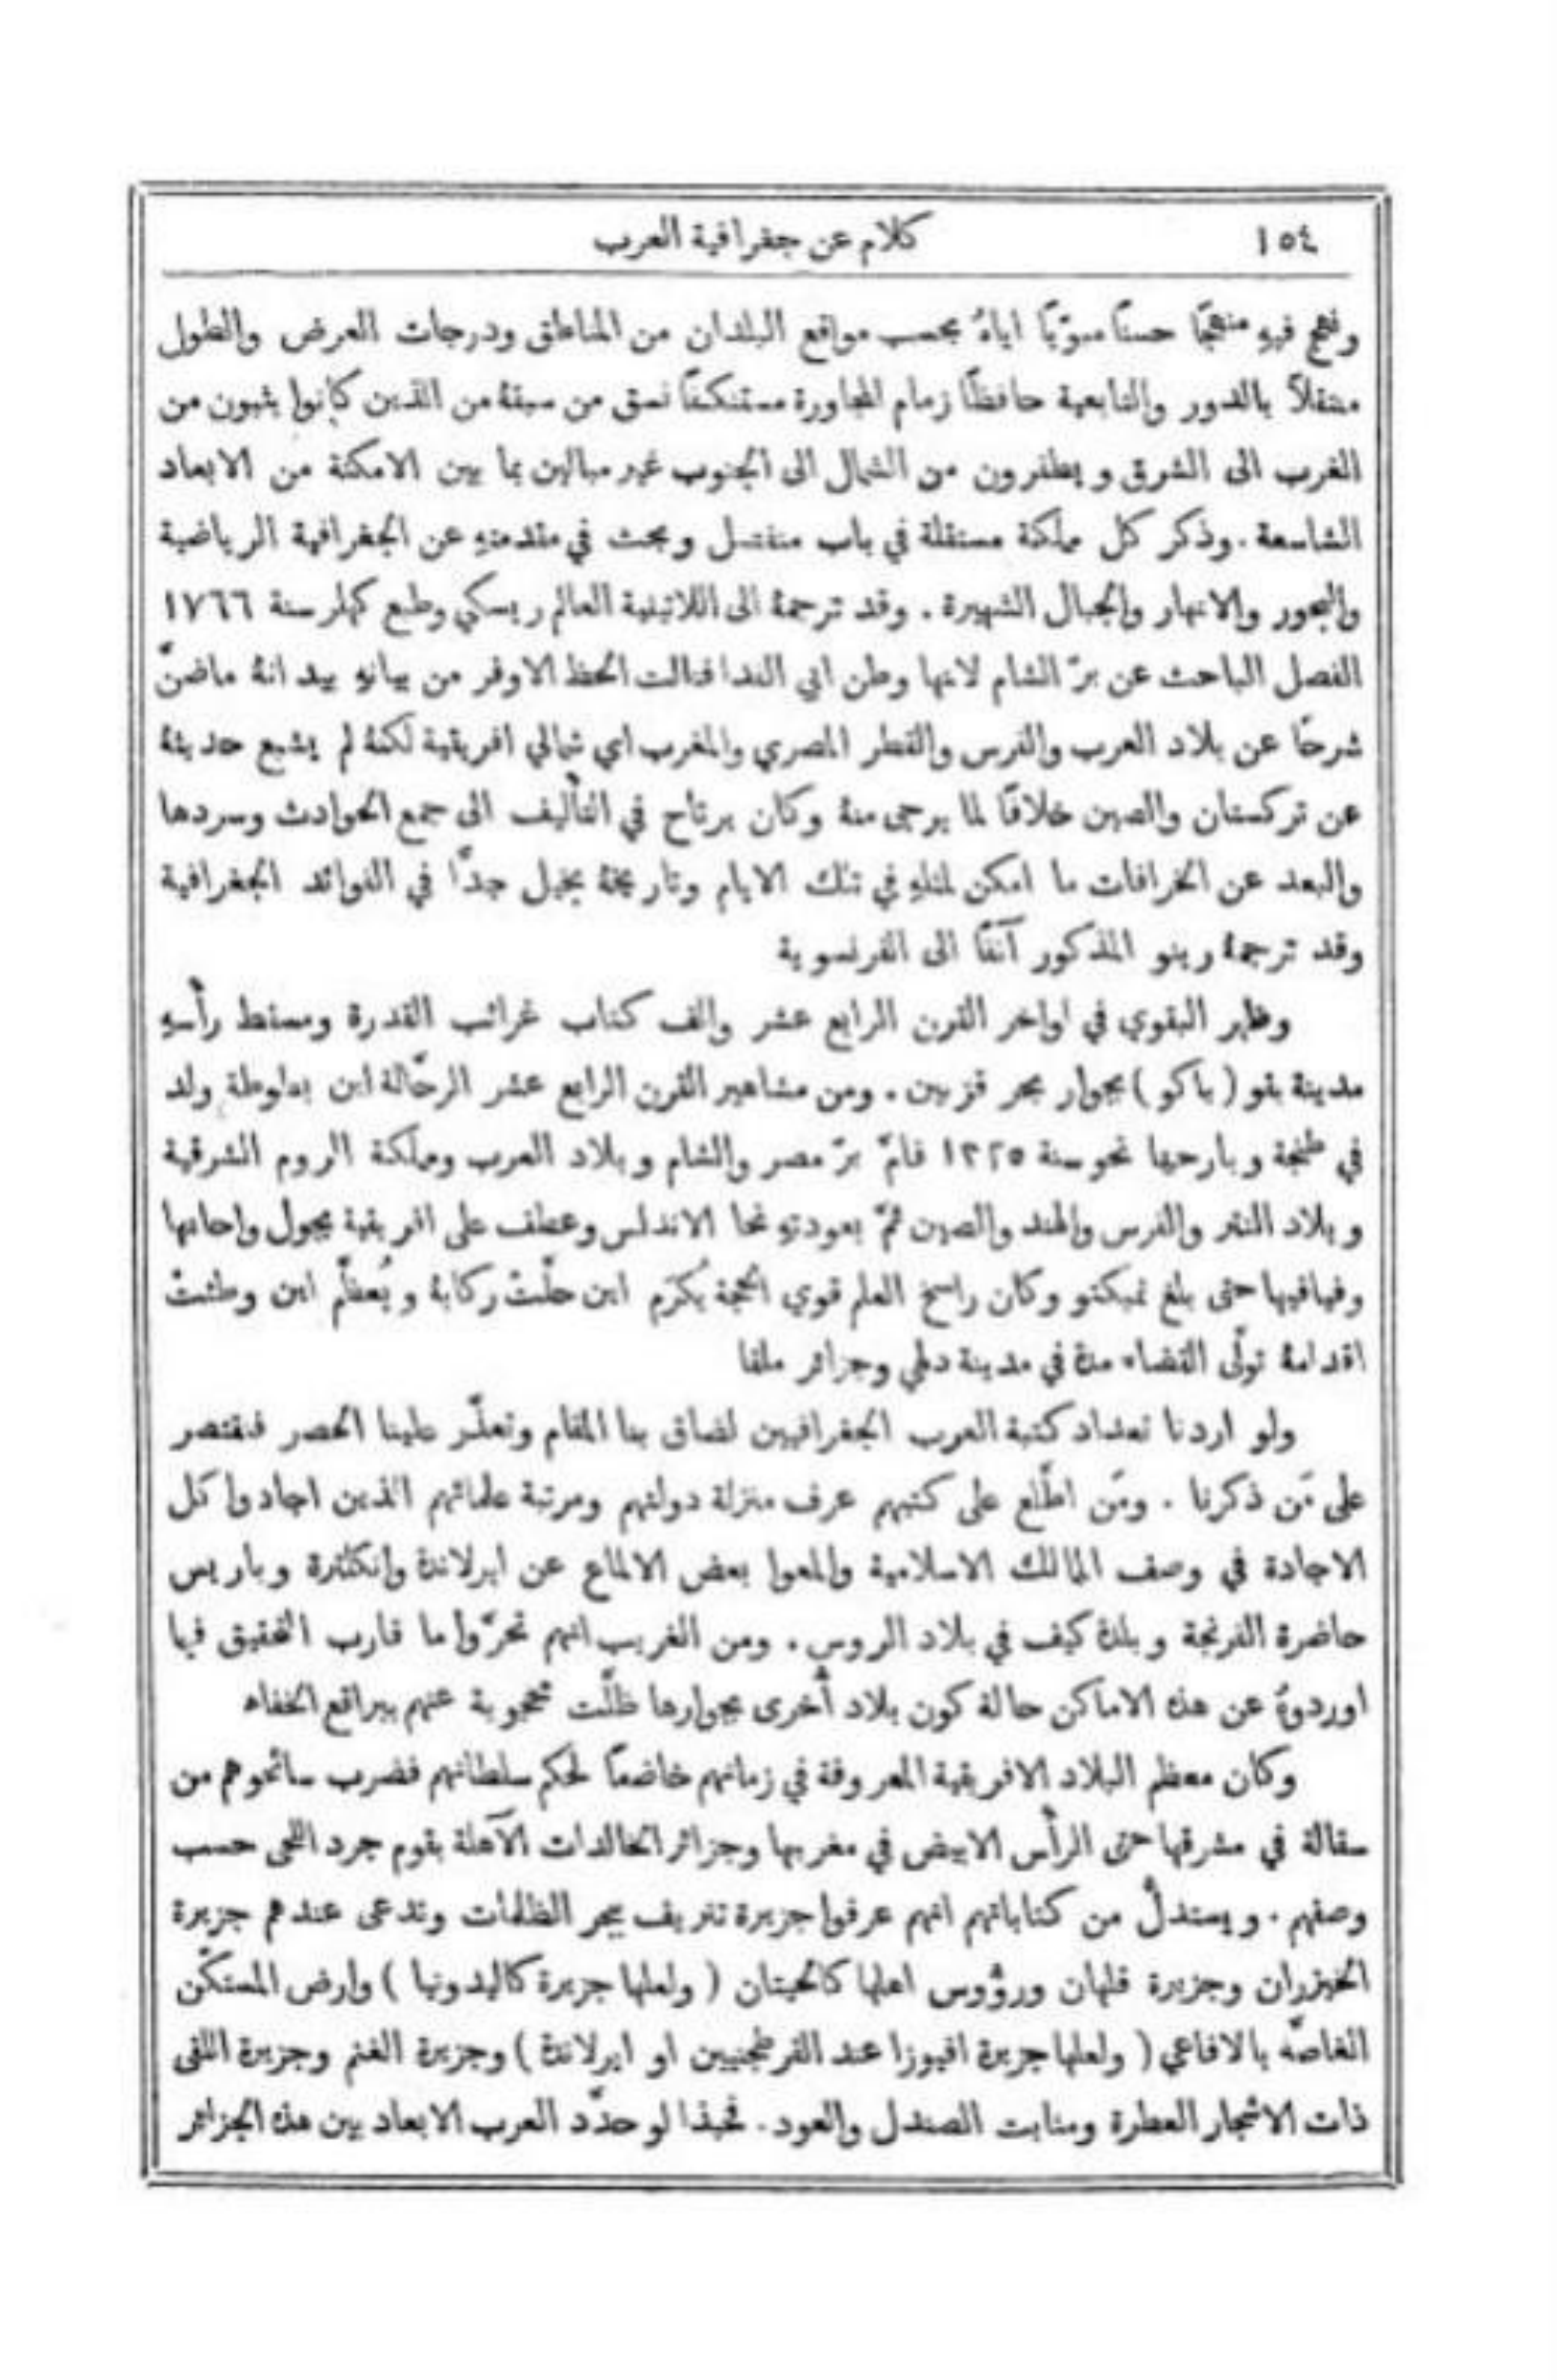 ١٥٤
كلام عن جغرافية العرب
ونهج فيهِ منهجًا حسنًا مبوّبًا اياهُ بحسب مواقع البلدان من المناطق ودرجات العرض والطول
متنقلاً بالدور والتابعية حافظًا زمام المجاورة مستنكفًا نسق من سبقهُ من الذين كانوا يثبون من
الغرب الى الشرق ويطفرون من الشمال الى الجنوب غير مبالين بما بين الامكنة من الابعاد
الشاسعة . وذكر كل مملكة مستقلة في باب منفصل وبحث في مقدمتهِ عن الجغرافية الرياضية
والبحور والانهار والجبال الشهيرة . وقد ترجمهُ الى اللاتينية العالم ريسكي وطبع كهلر سنة ١٧٦٦
الفصل الباحث عن برّ الشام لانها وطن ابي الفدا فنالت الحظ الاوفر من بيانهِ بيد انهُ ماضنّ
شرحًا عن بلاد العرب والفرس والقطر المصري والمغرب اي شمالي افريقية لكنهُ لم يشبع حديثهُ
عن تركستان والصين خلافًا لما يرجى منهُ وكان يرتاح في التأليف الى جمع الحوادث وسردها
والبعد عن الخرافات ما امكن لمثلهِ في تلك الايام وتاريخهُ بخيل جدًّا في الفوائد الجغرافية
وقد ترجمهُ رينو المذكور آنفًا الى الفرنسوية
وظهر البقوي في اواخر القرن الرابع عشر والف كتاب غرائب القدرة ومسقط رأسهِ
مدينة بقو ( باكو ) بجوار بحر قزبين . ومن مشاهير القرن الرابع عشر الرحّالة ابن بطوطة ولد
في طنجة وبارحها نحو سنة ١٣٢٥ فامّ برّ مصر والشام وبلاد العرب ومملكة الروم الشرقية
وبلاد التتر والفرس والهند والصين ثمّ بعودتهِ نحا الاندلس وعطف على افريقية يجول واحاتها
وفيافيها حتى بلغ تمبكتو وكان راسخ العلم قوي الحجة يُكرَم اين حلّتْ ركابهُ ويُعظّم اين وطئتْ
اقدامهُ تولّى القضاء مدة في مدينة دهلي وجزائر ملفا
ولو اردنا تعداد كتبة العرب الجغرافيين لضاق بنا المقام وتعذّر علينا الحصر فنقتصر
على مَن ذكرنا . ومَن اطّلع على كتبهم عرف منزلة دولتهم ومرتبة علمائهم الذين اجادوا كل
الاجادة في وصف الممالك الاسلامية والمعوا بعض الالماع عن ايرلاندة وانكلترة وباريس
حاضرة الفرنجة وبلدة كيف في بلاد الروس . ومن الغريب انهم تحرّوا ما قارب التحقيق فيما
اوردوهُ عن هذه الاماكن حالة كون بلاد أخرى بجوارها ظلّت محجوبة عنهم ببراقع الخفاء
وكان معظم البلاد الافريقية المعروفة في زمانهم خاضعًا لحكم سلطانهم فضرب سائحوهم من
سفالة في مشرقها حتى الرأس الابيض في مغربها وجزائر الخالدات الآهلة بقوم جرد اللحى حسب
وصفهم . ويستدلّ من كتاباتهم انهم عرفوا جزيرة تنريف ببحر الظلمات وتدعى عندهم جزيرة
الخيزران وجزيرة قلهان ورؤوس اهلها كالحيتان ( ولعلها جزيرة كاليدونيا ) وارض المستكّن
الغاصّة بالافاعي ( ولعلها جزيرة افيوزا عند القرطجنيين او ايرلاندة ) وجزيرة الغنم وجزيرة اللقى
ذات الاشجار العطرة ومنابت الصندل والعود . فحبذا لو حدّد العرب الابعاد بين هذه الجزائر